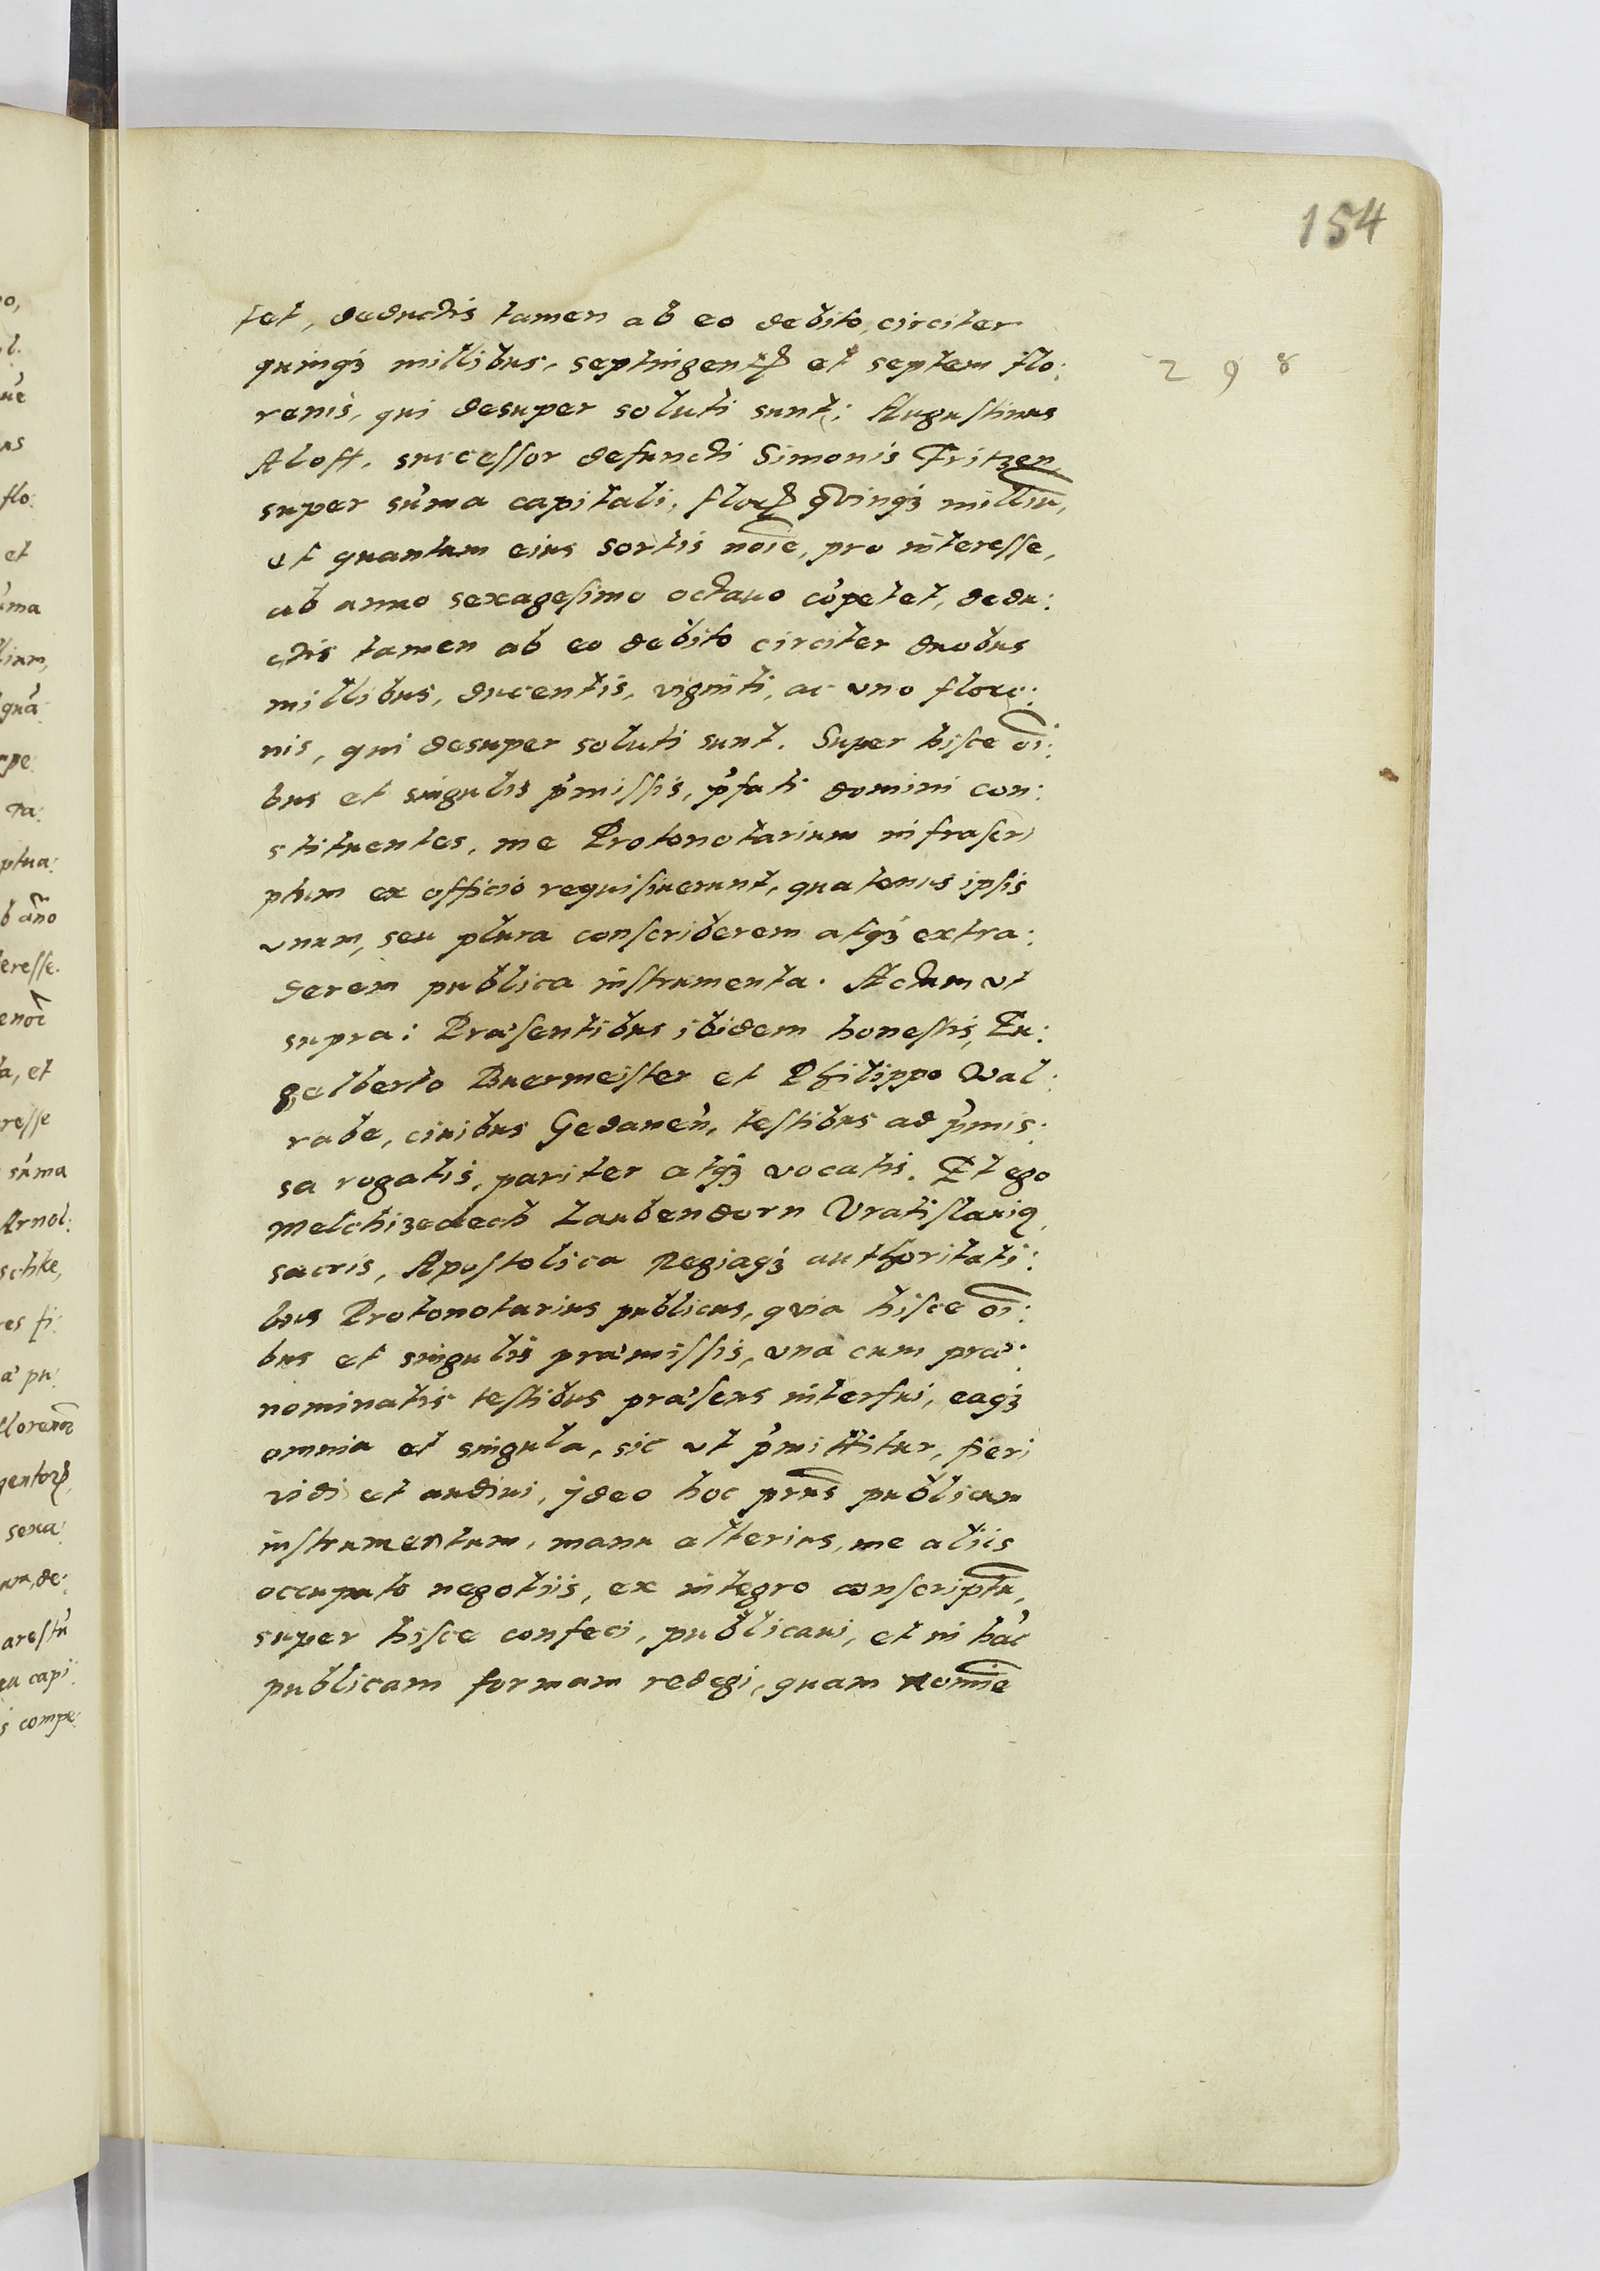 154
298
tet, deductis tamen ab eo debito, circiter
quinqꝫ millibus, septingentꝭ et septem flo:
renis, qui desuper soluti sunt; Augustinus
Aloff, successor defuncti Simonis Fritzen,
super sum̄a capitali, florꝭ qvinqꝫ milliū,
et quantum eius sortis noīe, pro interesse,
ab anno sexagesimo octauo cōpetet, dedu:
ctis tamen ab eo debito circiter duobus
millibus, ducentis, viginti, ac vno flore:
nis, qui desuper soluti sunt. Super hisce oī:
bus et singulis p̄missis, p̄fati domini con:
stituentes, me Protonotarium infrascri
ptum ex officio requisiuerunt, quatenus ipsis
vnum, seu plura conscriberem atqꝫ extra:
derem publica instrumenta. Actum vt
supra: Præsentibus ibidem honestis, En:
gelberto Buermeister et Philippo Wal:
rabe, ciuibus Gedanen̄, testibus ad p̄mis:
sa rogatis, pariter atqꝫ vocatis. Et ego
Melchizedech Laubendorn Vratislauiꝫ,
sacris, Apostolica Regiaqꝫ authoritati:
bus Protonotarius publicus, qvia hisce oī:
bus et singulis præmissis, vna cum præ:
nominatis testibus præsens interfui, eaqꝫ
omnia et singula, sic vt p̄mittitur, fieri
vidi et audiui, jdeo hoc prn̄s publicum
instrumentum, manu alterius, me aliis
occupato negotiis, ex integro conscriptū,
super hisce confeci, publicaui, et in hāc
publicam formam redegi, quam nomīe